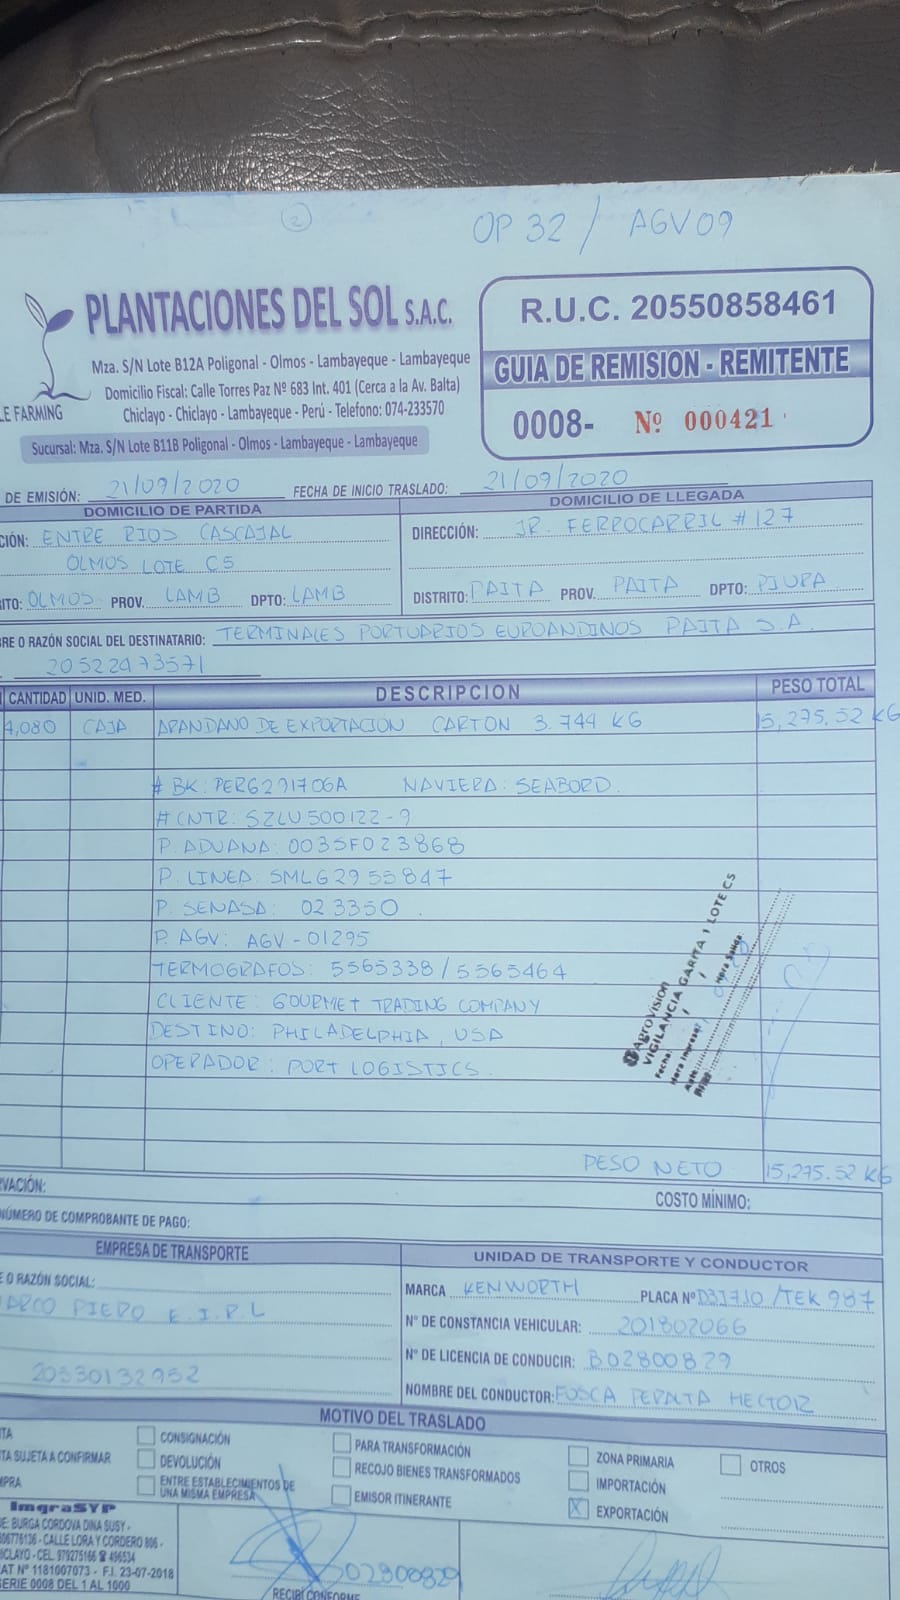 2
OP 32 / AGV09
PLANTACIONES DEL SOL S.A.C.
Mza. S/N Lote B12A Poligonal - Olmos - Lambayeque - Lambayeque
Domicilio Fiscal: Calle Torres Paz Nº 683 Int. 401 (Cerca a la Av. Balta)
Chiclayo - Chiclayo - Lambayeque - Perú - Telefono: 074-233570
LE FARMING
Sucursal: Mza. S/N Lote B11B Poligonal - Olmos - Lambayeque - Lambayeque
R.U.C. 20550858461
GUIA DE REMISION - REMITENTE
0008- Nº 000421
DE EMISIÓN: 21/09/2020 FECHA DE INICIO TRASLADO: 21/09/2020
DOMICILIO DE PARTIDA
CIÓN: ENTRE RIOS CASCAJAL
OLMOS LOTE C5
ITO: OLMOS PROV. LAMB DPTO: LAMB
DOMICILIO DE LLEGADA
DIRECCIÓN: JR. FERROCARRIL # 127
DISTRITO: PAITA PROV. PAITA DPTO: PIURA
RE O RAZÓN SOCIAL DEL DESTINATARIO: TERMINALES PORTUARIOS EUROANDINOS PAITA S.A.
20522473571
CANTIDAD UNID. MED. DESCRIPCION PESO TOTAL
4,080 CAJA ARANDANO DE EXPORTACION CARTON 3.744 KG 15,275.52 KG
# BK: PER6291706A NAVIERA: SEABORD.
# CNTR: SZLU500122-9
P. ADUANA: 0035F023868
P. LINEA: SMLG2955847
P. SENASA: 023350.
P. AGV: AGV-01295
TERMOGRAFOS: 5565338/5565464
CLIENTE: GOURMET TRADING COMPANY
DESTINO: PHILADELPHIA, USA
OPERADOR: PORT LOGISTICS.
AgroVision
VIGILANCIA GARITA 1 LOTE C5
Fecha:
Hora Ingreso: Hora Salida:
PESO NETO 15,275.52 KG
RVACIÓN: COSTO MÍNIMO:
NÚMERO DE COMPROBANTE DE PAGO:
EMPRESA DE TRANSPORTE
E O RAZÓN SOCIAL:
MARCO PIERO E.I.R.L
20530132952
UNIDAD DE TRANSPORTE Y CONDUCTOR
MARCA KENWORTH PLACA Nº D3J710/TEK987
Nº DE CONSTANCIA VEHICULAR: 201802066
Nº DE LICENCIA DE CONDUCIR: B02800829
NOMBRE DEL CONDUCTOR: FOSCA PERALTA HECTOR
MOTIVO DEL TRASLADO
TA CONSIGNACIÓN PARA TRANSFORMACIÓN ZONA PRIMARIA OTROS
TA SUJETA A CONFIRMAR DEVOLUCIÓN RECOJO BIENES TRANSFORMADOS IMPORTACIÓN
MPRA ENTRE ESTABLECIMIENTOS DE UNA MISMA EMPRESA EMISOR ITINERANTE X EXPORTACIÓN
ImgraSYP
DE: BURGA CORDOVA DINA SUSY -
806776136 - CALLE LORA Y CORDERO 806 -
ICLAYO - CEL. 979275166 ☎ 496534
AT Nº 1181007073 - F.I. 23-07-2018
SERIE 0008 DEL 1 AL 1000
02800829
RECIBÍ CONFORME